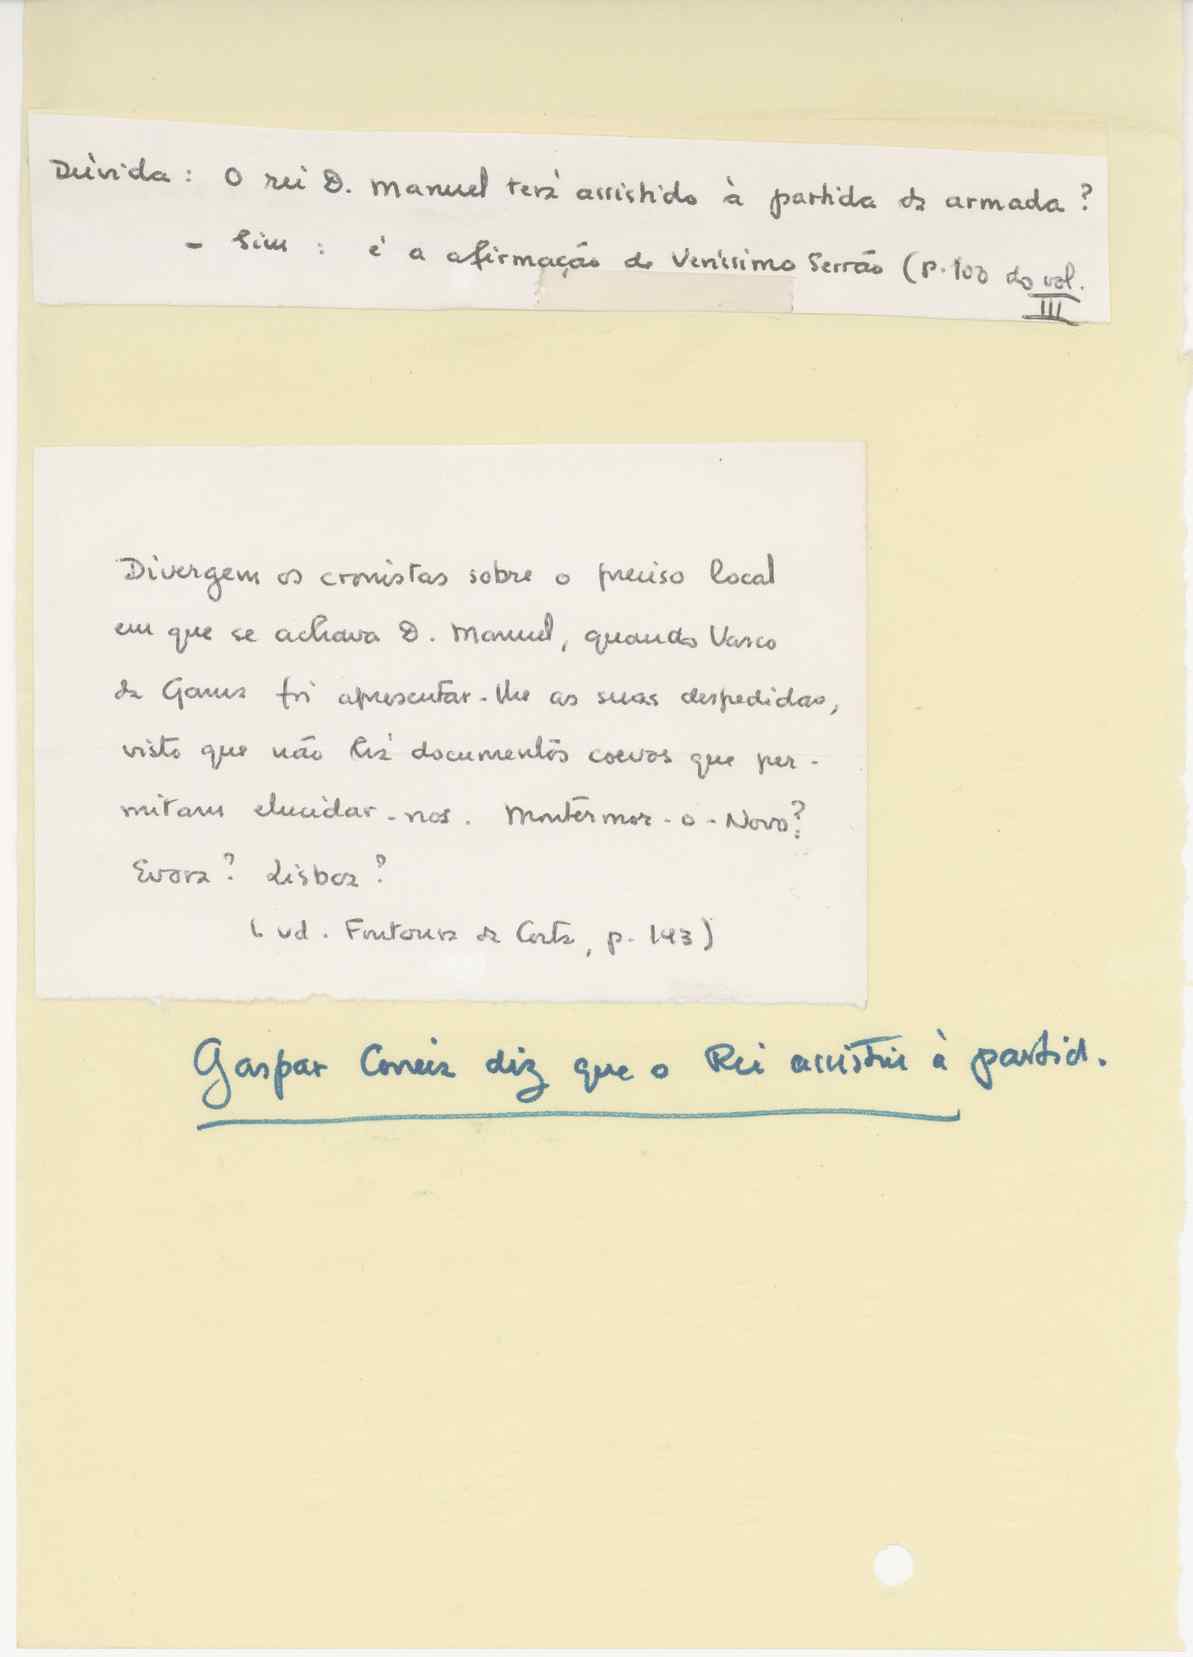 Dúvida : O rei D. Manuel terá assistido à partida da armada ?
- Sim : é a afirmação de Veríssimo Serrão (p. 100 do vol.
III
Divergem os cronistas sobre o preciso local
em que se achava D. Manuel, quando Vasco
da Gama foi apresentar-lhe as suas despedidas,
visto que não há documentos coevos que per-
mitam elucidar-nos. Montemor-o-Novo?
Evora? Lisboa?
(vd. Fontoura da Costa, p. 143)
Gaspar Correia diz que o Rei assistiu à partid.